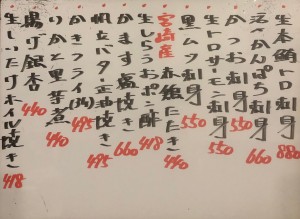 生本鮪刺身 880
活〆かんぱち刺身 660
かつお刺身 550
生トロサーモン刺身 550
黒ムツ刺身 550
宮崎産 赤鶏たたき 440
生しらうおポン酢 418
かます塩焼き 660
帆立バター正油焼き 495
かきフライ(3ヶ) 495
りかと里芋煮 440
揚げ銀杏 440
生しいたけホイル焼き 418